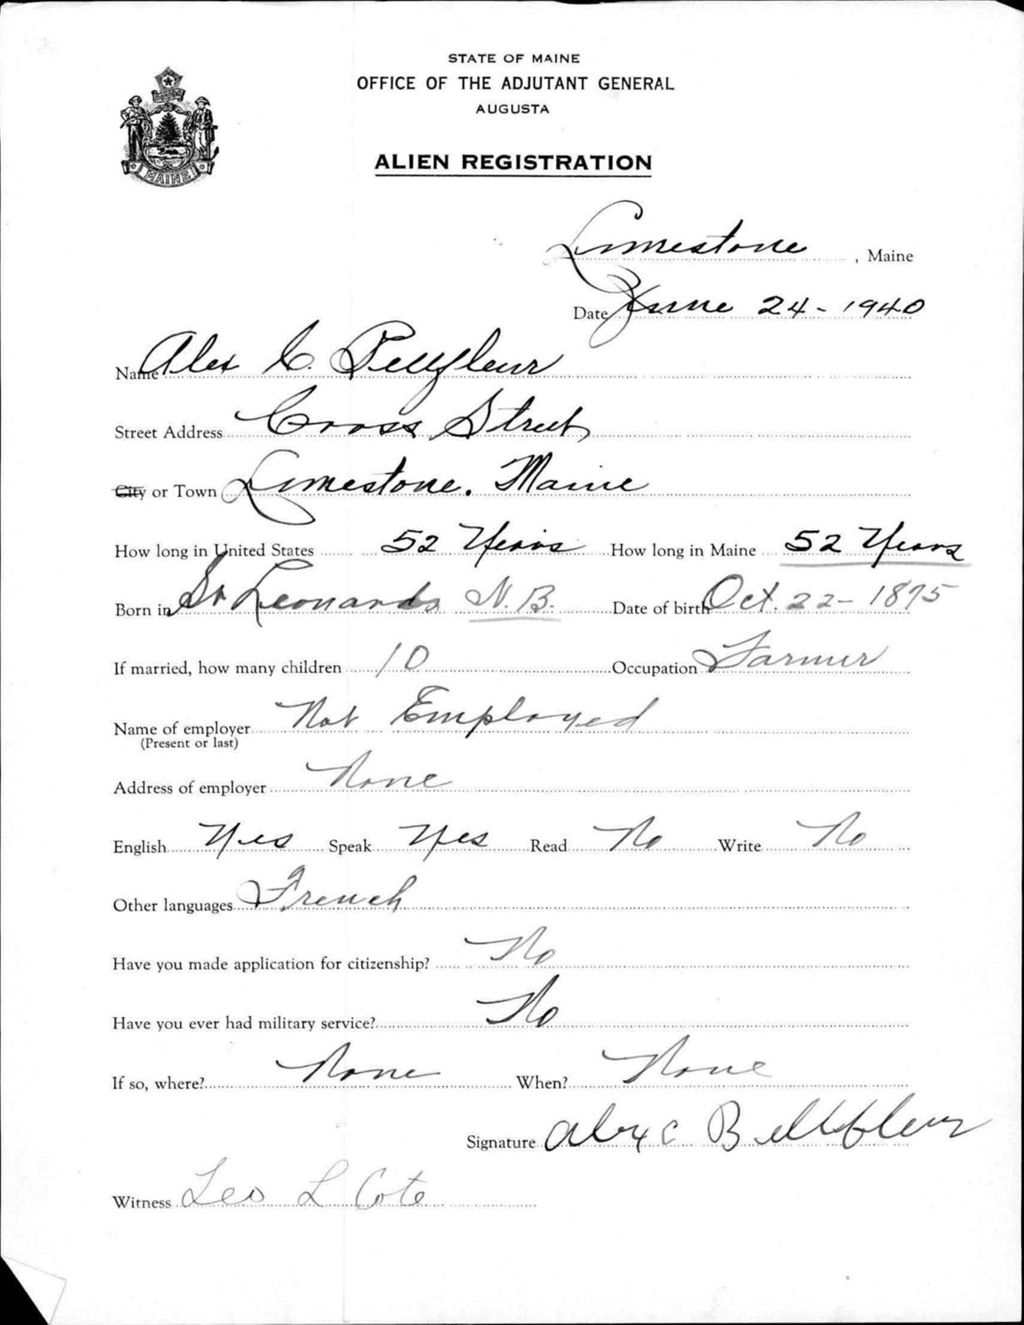 STATE OF MAINE
OFFICE OF THE ADJUTANT GENERAL
AUGUSTA
ALIEN REGISTRATION
MAINE
Limestone, Maine
Date June 24 - 1940
Name Alex C. Bellfleur
Street Address Cross Street
City or Town Limestone. Maine
How long in United States 52 Years How long in Maine 52 Years
Born in St Leonards N.B. Date of birth Oct. 22 - 1875
If married, how many children 10 Occupation Farmer
Name of employer Not Employed
(Present or last)
Address of employer None
English Yes Speak Yes Read No Write No
Other languages French
Have you made application for citizenship? No
Have you ever had military service? No
If so, where? None When? None
Signature Alex C Bellfleur
Witness Leo L Cote